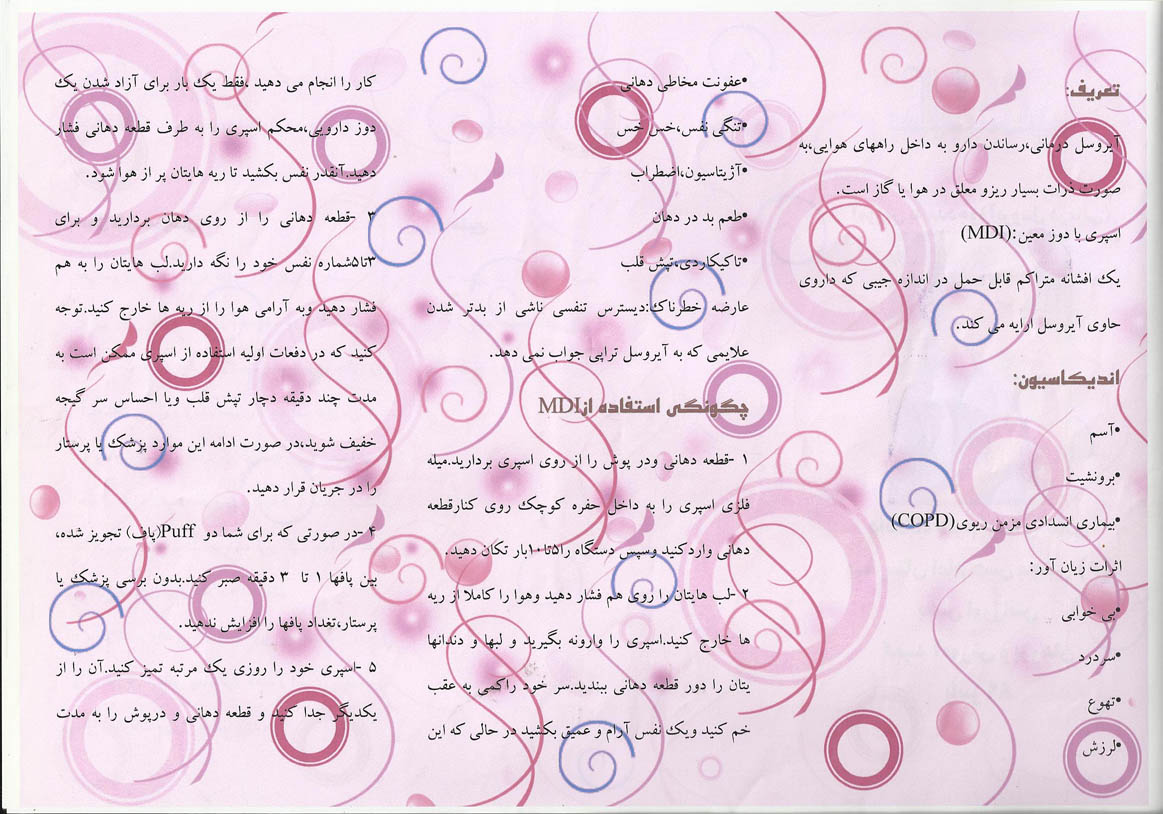 تعریف:
آیروسل درمانی،رساندن دارو به داخل راههای هوایی،به
صورت ذرات بسیار ریزو معلق در هوا یا گاز است.
اسپری با دوز معین:(MDI)
یک افشانه متراکم قابل حمل در اندازه جیبی که داروی
حاوی آیروسل ارایه می کند.
اندیکاسیون:
•آسم
•برونشیت
•بیماری انسدادی مزمن ریوی(COPD)
اثرات زیان آور:
•بی خوابی
•سردرد
•تهوع
•لرزش
•عفونت مخاطی دهانی
•تنگی نفس،خس خس
•آژیتاسیون،اضطراب
•طعم بد در دهان
•تاکیکاردی،تپش قلب
عارضه خطرناک:دیسترس تنفسی ناشی از بدتر شدن
علایمی که به آیروسل تراپی جواب نمی دهد.
چگونگی استفاده ازMDI
۱ -قطعه دهانی ودر پوش را از روی اسپری بردارید.میله
فلزی اسپری را به داخل حفره کوچک روی کنارقطعه
دهانی واردکنید وسپس دستگاه را۵تا۱۰بار تکان دهید.
۲ -لب هایتان را روی هم فشار دهید وهوا را کاملا از ریه
ها خارج کنید.اسپری را وارونه بگیرید و لبها و دندانها
یتان را دور قطعه دهانی ببندید.سر خود راکمی به عقب
خم کنید ویک نفس آرام و عمیق بکشید در حالی که این
کار را انجام می دهید ،فقط یک بار برای آزاد شدن یک
دوز دارویی،محکم اسپری را به طرف قطعه دهانی فشار
دهید.آنقدر نفس بکشید تا ریه هایتان پر از هوا شود.
۳ -قطعه دهانی را از روی دهان بردارید و برای
۳تا۵شماره نفس خود را نگه دارید.لب هایتان را به هم
فشار دهید وبه آرامی هوا را از ریه ها خارج کنید.توجه
کنید که در دفعات اولیه استفاده از اسپری ممکن است به
مدت چند دقیقه دچار تپش قلب ویا احساس سر گیجه
خفیف شوید،در صورت ادامه این موارد پزشک یا پرستار
را در جریان قرار دهید.
۴ -در صورتی که برای شما دو Puff(پاف) تجویز شده،
بین پافها ۱ تا ۳ دقیقه صبر کنید.بدون برسی پزشک یا
پرستار،تغداد پافها را افزایش ندهید.
۵ -اسپری خود را روزی یک مرتبه تمیز کنید.آن را از
یکدیگر جدا کنید و قطعه دهانی و درپوش را به مدت